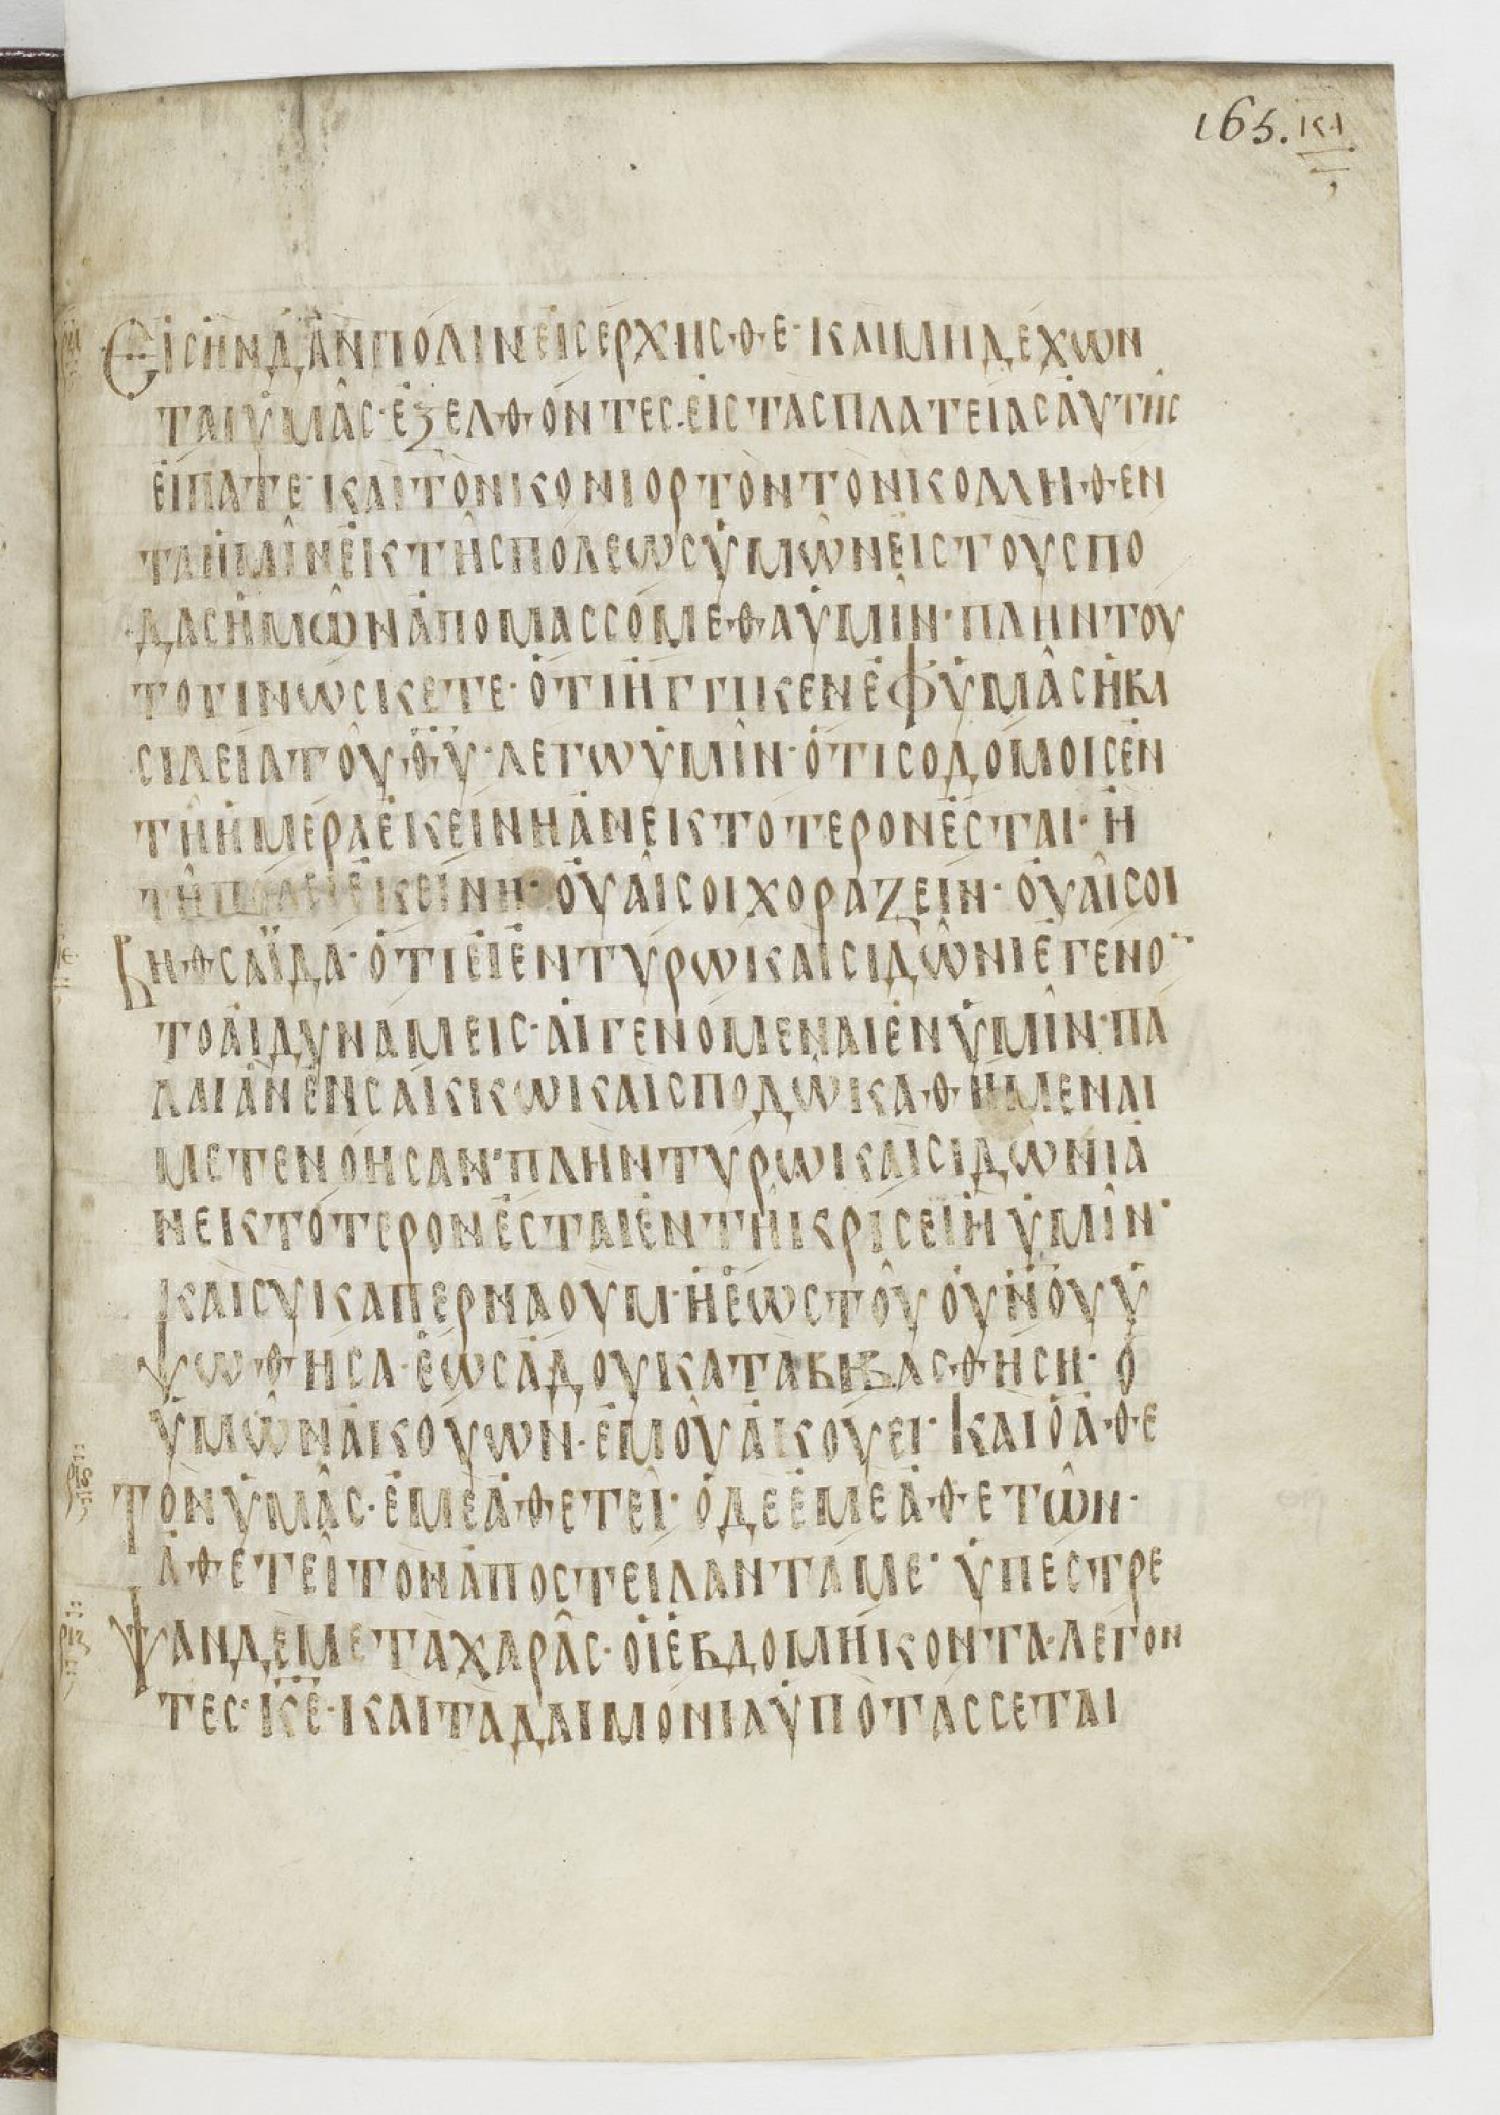 165. ΚΑ
ΕΙΣΗΝΔΑΝΠΟΛΙΝΕΙΣΕΡΧΗΣΘΕ· ΚΑΙΜΗΔΕΧΩΝ
ΤΑΙΥΜΑΣ·ΕΞΕΛΘΟΝΤΕΣ·ΕΙΣΤΑΣΠΛΑΤΕΙΑΣΑΥΤΗΣ
ΕΙΠΑΤΕ· ΚΑΙΤΟΝΚΟΝΙΟΡΤΟΝΤΟΝΚΟΛΛΗΘΕΝ
ΤΑΗΜΙΝΕΚΤΗΣΠΟΛΕΩΣΥΜΩΝΕΙΣΤΟΥΣΠΟ
ΔΑΣΗΜΩΝΑΠΟΜΑΣΣΟΜΕΘΑΥΜΙΝ· ΠΛΗΝΤΟΥ
ΤΟΓΙΝΩΣΚΕΤΕ· ΟΤΙΗΓΓΙΚΕΝΕΦΥΜΑΣΗΒΑ
ΣΙΛΕΙΑΤΟΥΘΥ· ΛΕΓΩΥΜΙΝ· ΟΤΙΣΟΔΟΜΟΙΣΕΝ
ΤΗΗΜΕΡΑΕΚΕΙΝΗΑΝΕΚΤΟΤΕΡΟΝΕΣΤΑΙ· Η
ΤΗΠΟΛΕΙΕΚΕΙΝΗ· ΟΥΑΙΣΟΙΧΟΡΑΖΕΙΝ· ΟΥΑΙΣΟΙ
ΒΗΘΣΑΪΔΑ· ΟΤΙΕΙΕΝΤΥΡΩΚΑΙΣΙΔΩΝΙΕΓΕΝΟ
ΤΟΑΙΔΥΝΑΜΕΙΣ· ΑΙΓΕΝΟΜΕΝΑΙΕΝΥΜΙΝ· ΠΑ
ΛΑΙΑΝΕΝΣΑΚΚΩΚΑΙΣΠΟΔΩΚΑΘΗΜΕΝΑΙ
ΜΕΤΕΝΟΗΣΑΝ· ΠΛΗΝΤΥΡΩΚΑΙΣΙΔΩΝΙΑ
ΝΕΚΤΟΤΕΡΟΝΕΣΤΑΙΕΝΤΗΚΡΙΣΕΙΗΥΜΙΝ·
ΚΑΙΣΥΚΑΠΕΡΝΑΟΥΜ· ΗΕΩΣΤΟΥΟΥΝΟΥΥ
ΨΩΘΗΣΑ· ΕΩΣΑΔΟΥΚΑΤΑΒΙΒΑΣΘΗΣΗ· Ο
ΥΜΩΝΑΚΟΥΩΝ· ΕΜΟΥΑΚΟΥΕΙ· ΚΑΙΟΑΘΕ
ΤΟΝΥΜΑΣ· ΕΜΕΑΘΕΤΕΙ· ΟΔΕΕΜΕΑΘΕΤΩΝ·
ΑΘΕΤΕΙΤΟΝΑΠΟΣΤΕΙΛΑΝΤΑΜΕ· ΥΠΕΣΤΡΕ
ΨΑΝΔΕΜΕΤΑΧΑΡΑΣ· ΟΙΕΒΔΟΜΗΚΟΝΤΑ· ΛΕΓΟΝ
ΤΕΣ· ΚΕ· ΚΑΙΤΑΔΑΙΜΟΝΙΑΥΠΟΤΑΣΣΕΤΑΙ